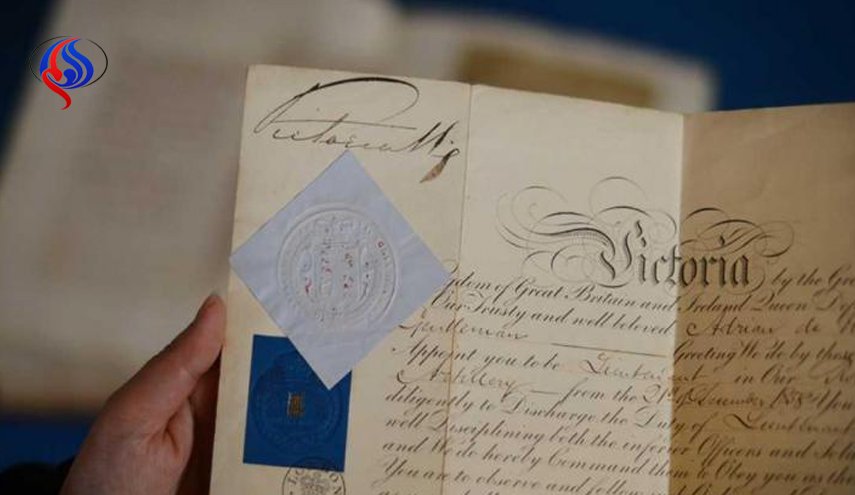 Victoria R
Victoria by the Gra
gdom of Great Britain and Ireland Queen Def
Our Trusty and well beloved Adrian de
Gentleman Greeting We do by those
Appoint you to be Lieutenant in Our
Artillery from the 21st December You
diligently to Discharge the Duty of Lieutenant
well Disciplining both the inferior Officers and Sol
and We do hereby Command them to Obey you as the
You are to observe and follow
LONDON